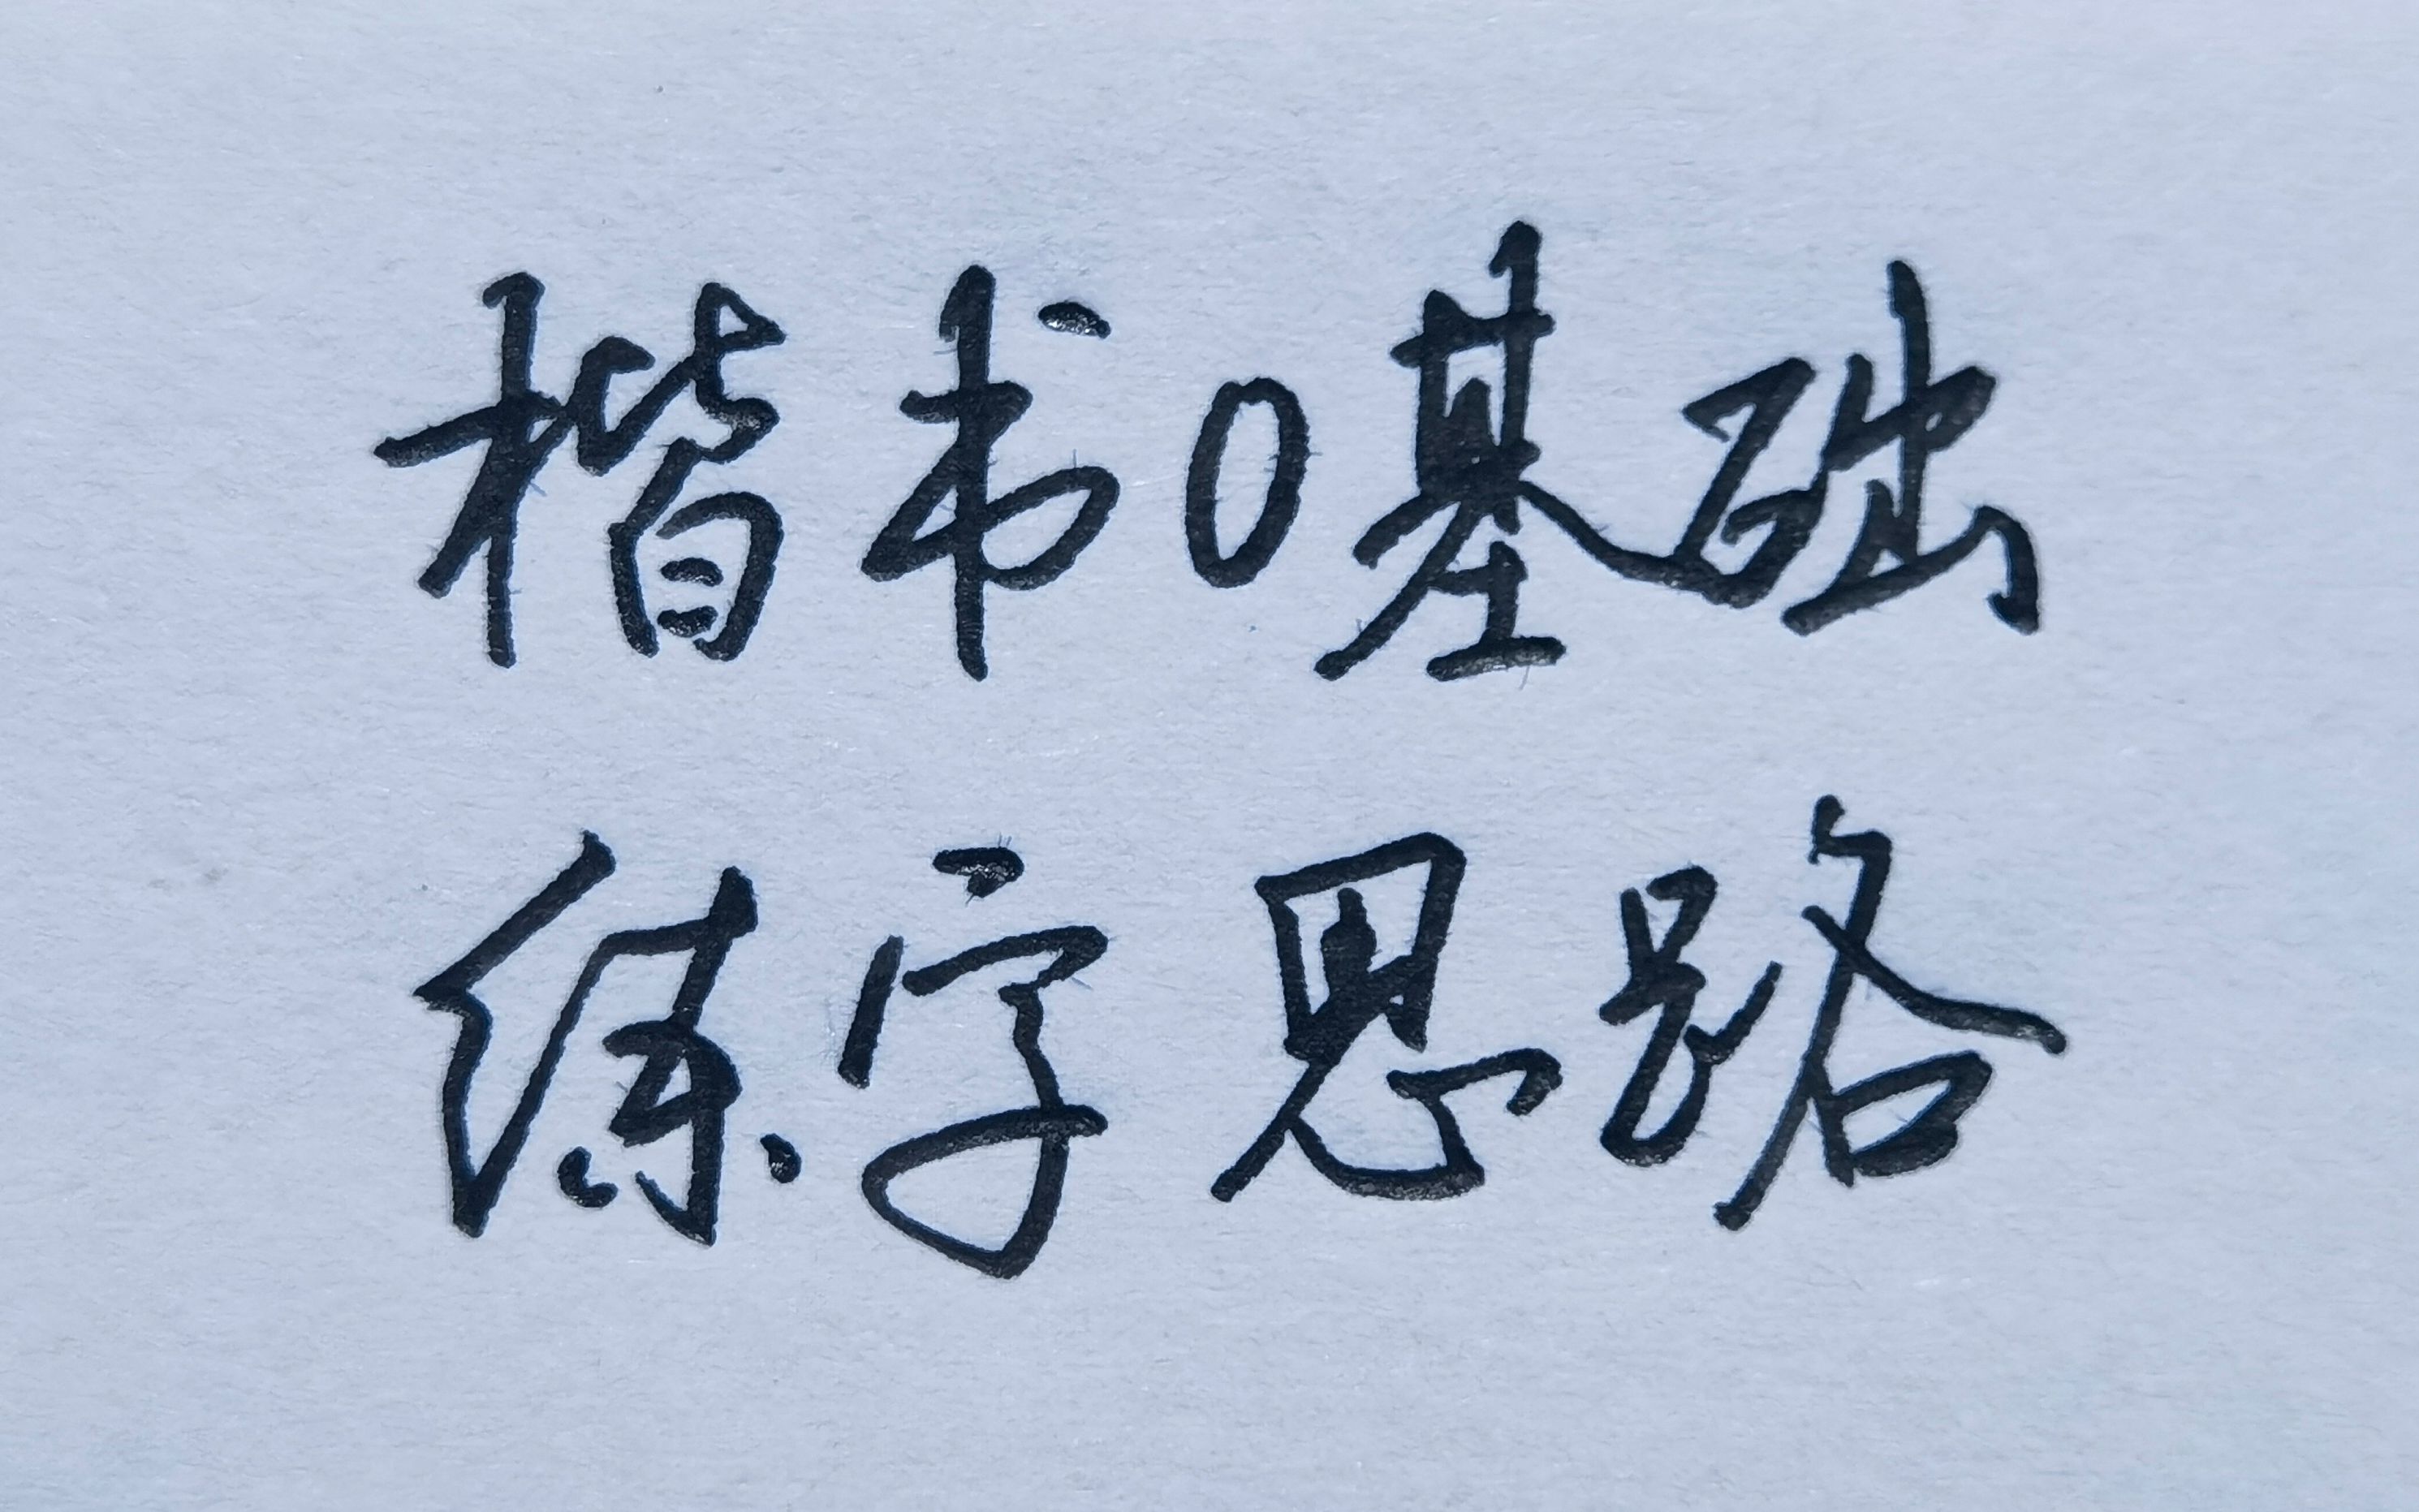 楷书0基础
练字思路